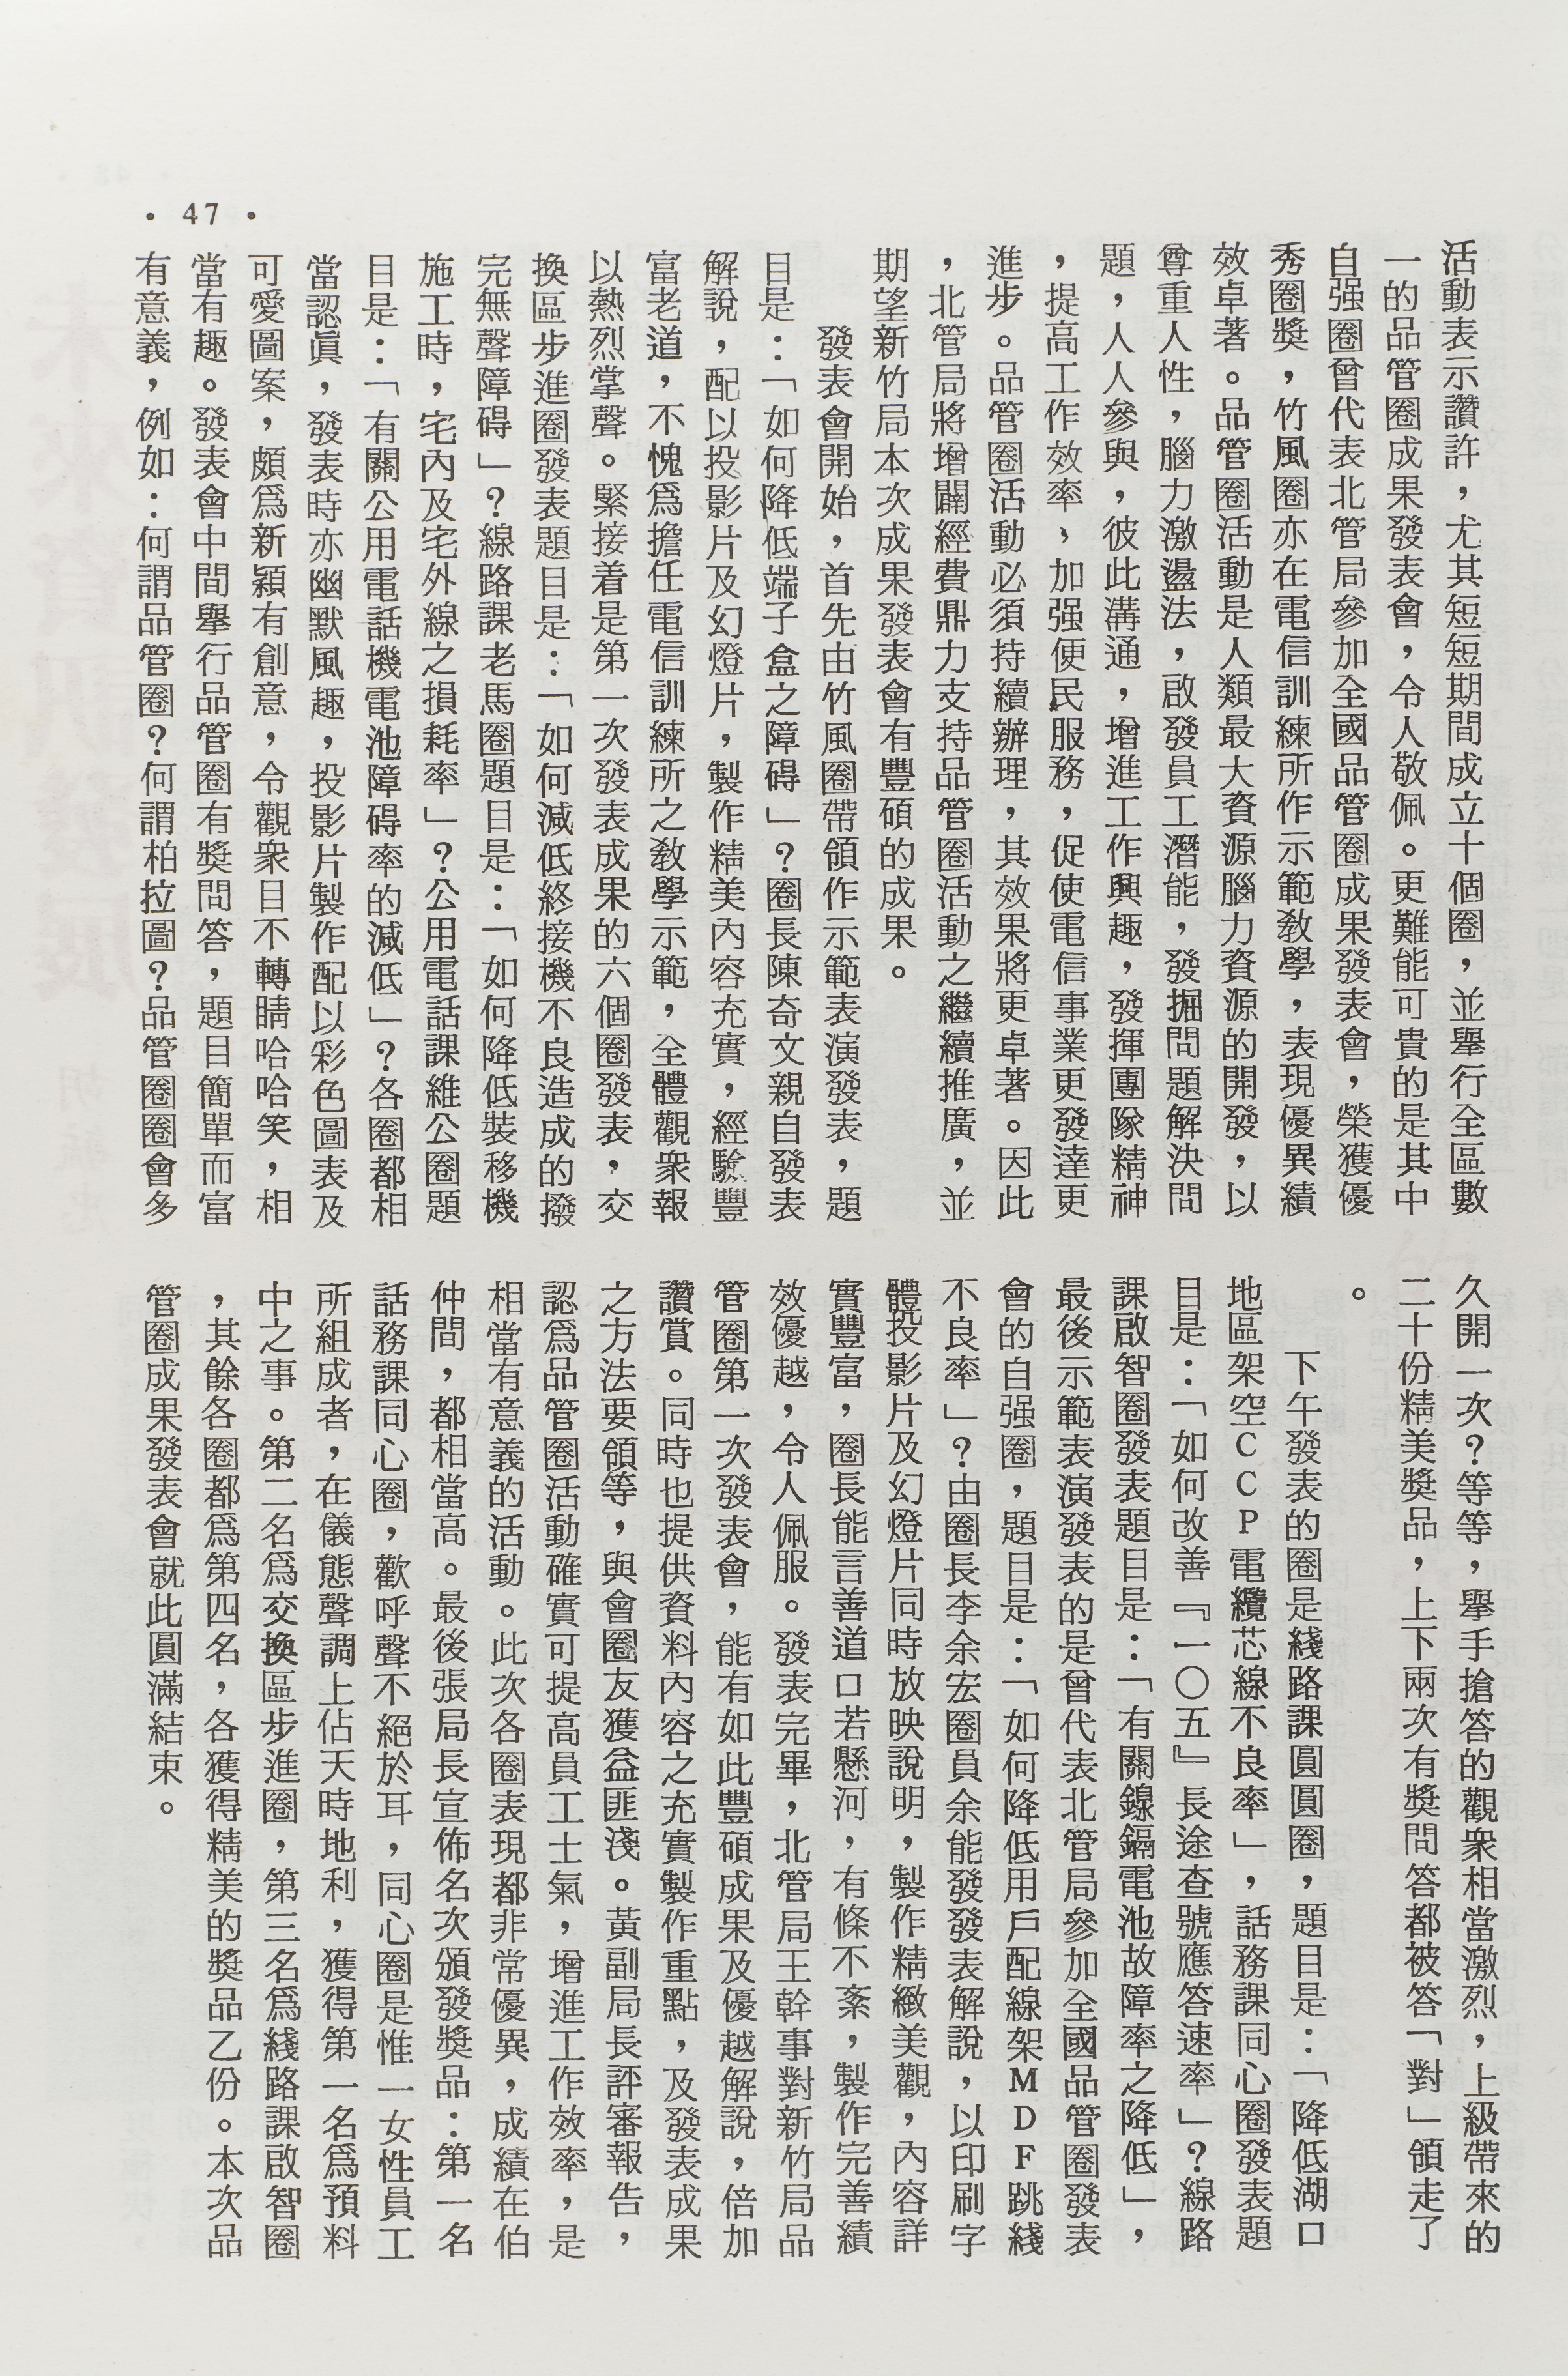 · 47 ·
活動表示讚許，尤其短短期間成立十個圈，並舉行全區數
一的品管圈成果發表會，令人敬佩。更難能可貴的是其中
自强圈曾代表北管局參加全國品管圈成果發表會，榮獲優
秀圈獎，竹風圈亦在電信訓練所作示範敎學，表現優異績
效卓著。品管圈活動是人類最大資源腦力資源的開發，以
尊重人性，腦力激盪法，啟發員工潛能，發掘問題解決問
題，人人參與，彼此溝通，增進工作興趣，發揮團隊精神
，提高工作效率、加强便民服務，促使電信事業更發達更
進步。品管圈活動必須持續辦理，其效果將更卓著。因此
，北管局將增闢經費鼎力支持品管圈活動之繼續推廣，並
期望新竹局本次成果發表會有豐碩的成果。
發表會開始，首先由竹風圈帶領作示範表演發表，題
目是：「如何降低端子盒之障碍」？圈長陳奇文親自發表
解說，配以投影片及幻燈片，製作精美內容充實，經驗豐
富老道，不愧爲擔任電信訓練所之敎學示範，全體觀衆報
以熱烈掌聲。緊接着是第一次發表成果的六個圈發表，交
換區步進圈發表題目是：「如何減低終接機不良造成的撥
完無聲障碍」？線路課老馬圈題目是：「如何降低裝移機
施工時，宅內及宅外線之損耗率」？公用電話課維公圈題
目是：「有關公用電話機電池障碍率的減低」？各圈都相
當認眞，發表時亦幽默風趣，投影片製作配以彩色圖表及
可愛圖案，頗爲新穎有創意，令觀衆目不轉睛哈哈笑，相
當有趣。發表會中間舉行品管圈有獎問答，題目簡單而富
有意義，例如：何謂品管圈？何謂柏拉圖？品管圈圈會多
久開一次？等等，擧手搶答的觀衆相當激烈，上級帶來的
二十份精美獎品，上下兩次有獎問答都被答「對」領走了
。
下午發表的圈是綫路課圓圓圈，題目是：「降低湖口
地區架空CCP電纜芯線不良率」，話務課同心圈發表題
目是：「如何改善『一〇五』長途查號應答速率」？線路
課啟智圈發表題目是：「有關鎳鎘電池故障率之降低」，
最後示範表演發表的是曾代表北管局參加全國品管圈發表
會的自强圈，題目是：「如何降低用戶配線架MDF跳綫
不良率」？由圈長李余宏圈員余能發發表解說，以印刷字
體投影片及幻燈片同時放映說明，製作精緻美觀，內容詳
實豐富，圈長能言善道口若懸河，有條不紊，製作完善績
效優越，令人佩服。發表完畢，北管局王幹事對新竹局品
管圈第一次發表會，能有如此豐碩成果及優越解說，倍加
讚賞。同時也提供資料內容之充實製作重點，及發表成果
之方法要領等，與會圈友獲益匪淺。黃副局長評審報告，
認爲品管圈活動確實可提高員工士氣，增進工作效率，是
相當有意義的活動。此次各圈表現都非常優異，成績在伯
仲間，都相當高。最後張局長宣佈名次頒發獎品：第一名
話務課同心圈，歡呼聲不絕於耳，同心圈是惟一女性員工
所組成者，在儀態聲調上佔天時地利，獲得第一名爲預料
中之事。第二名爲交換區步進圈，第三名爲綫路課啟智圈
，其餘各圈都爲第四名，各獲得精美的獎品乙份。本次品
管圈成果發表會就此圓滿結束。